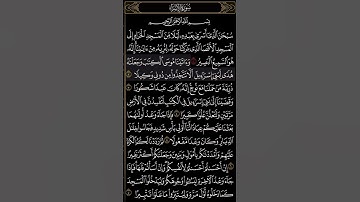 سُورَةُ الإِسْرَاءِ
بِسْمِ ٱللَّهِ ٱلرَّحْمَٰنِ ٱلرَّحِيمِ
سُبْحَٰنَ ٱلَّذِىٓ أَسْرَىٰ بِعَبْدِهِۦ لَيْلًا مِّنَ ٱلْمَسْجِدِ ٱلْحَرَامِ إِلَى
ٱلْمَسْجِدِ ٱلْأَقْصَا ٱلَّذِى بَٰرَكْنَا حَوْلَهُۥ لِنُرِيَهُۥ مِنْ ءَايَٰتِنَآ إِنَّهُۥ
هُوَ ٱلسَّمِيعُ ٱلْبَصِيرُ ١ وَءَاتَيْنَا مُوسَى ٱلْكِتَٰبَ وَجَعَلْنَٰهُ
هُدًى لِّبَنِىٓ إِسْرَٰٓءِيلَ أَلَّا تَتَّخِذُوا۟ مِن دُونِى وَكِيلًا ٢
ذُرِّيَّةَ مَنْ حَمَلْنَا مَعَ نُوحٍ إِنَّهُۥ كَانَ عَبْدًا شَكُورًا ٣
وَقَضَيْنَآ إِلَىٰ بَنِىٓ إِسْرَٰٓءِيلَ فِى ٱلْكِتَٰبِ لَتُفْسِدُنَّ فِى ٱلْأَرْضِ
مَرَّتَيْنِ وَلَتَعْلُنَّ عُلُوًّا كَبِيرًا ٤ فَإِذَا جَآءَ وَعْدُ أُولَىٰهُمَا
بَعَثْنَا عَلَيْكُمْ عِبَادًا لَّنَآ أُو۟لِى بَأْسٍ شَدِيدٍ فَجَاسُوا۟ خِلَٰلَ
ٱلدِّيَارِ وَكَانَ وَعْدًا مَّفْعُولًا ٥ ثُمَّ رَدَدْنَا لَكُمُ ٱلْكَرَّةَ
عَلَيْهِمْ وَأَمْدَدْنَٰكُم بِأَمْوَٰلٍ وَبَنِينَ وَجَعَلْنَٰكُمْ أَكْثَرَ نَفِيرًا ٦
إِنْ أَحْسَنتُمْ أَحْسَنتُمْ لِأَنفُسِكُمْ وَإِنْ أَسَأْتُمْ فَلَهَا فَإِذَا
جَآءَ وَعْدُ ٱلْءَاخِرَةِ لِيَسُـۥٓـُٔوا۟ وُجُوهَكُمْ وَلِيَدْخُلُوا۟ ٱلْمَسْجِدَ
كَمَا دَخَلُوهُ أَوَّلَ مَرَّةٍ وَلِيُتَبِّرُوا۟ مَا عَلَوْا۟ تَتْبِيرًا ٧